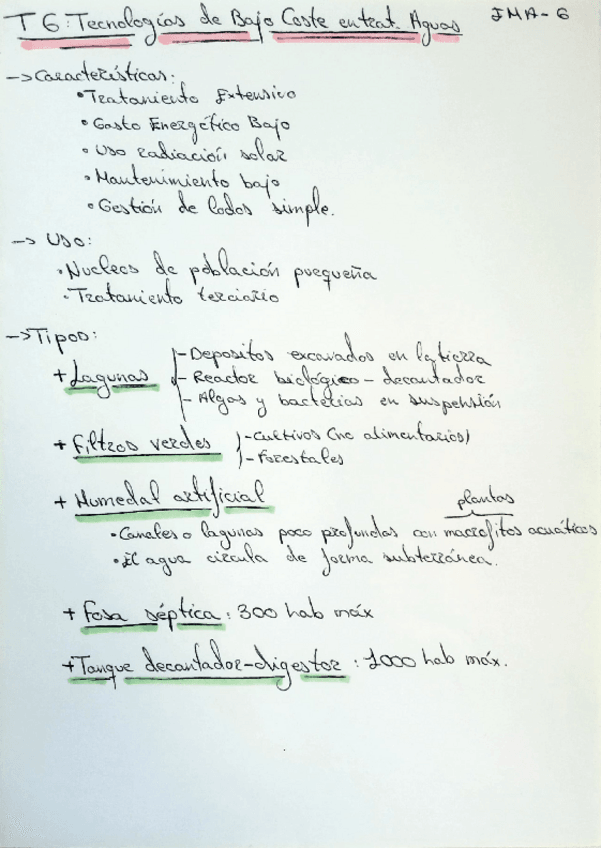 T 6: Tecnologías de Bajo Coste en trat. Aguas
IMA-6
-> Características:
• Tratamiento Extensivo
• Gasto Energético Bajo
• Uso radiación solar
• Mantenimiento bajo
• Gestión de lodos simple.
-> Uso:
• Nucleos de población puequeña
• Tratamiento terciario
-> Tipos:
+ Lagunas
- Depositos excavados en la tierra
- Reactor biológico - decantador
- Algas y bacterias en suspensión
+ Filtros verdes
- Cultivos (no alimentarios)
- Forestales
+ Humedal artificial
plantas
• Canales o lagunas poco profundas con macrofitos acuáticos
• El agua circula de forma subterránea.
+ Fosa séptica: 300 hab máx
+ Tanque decantador-digestor: 1000 hab máx.